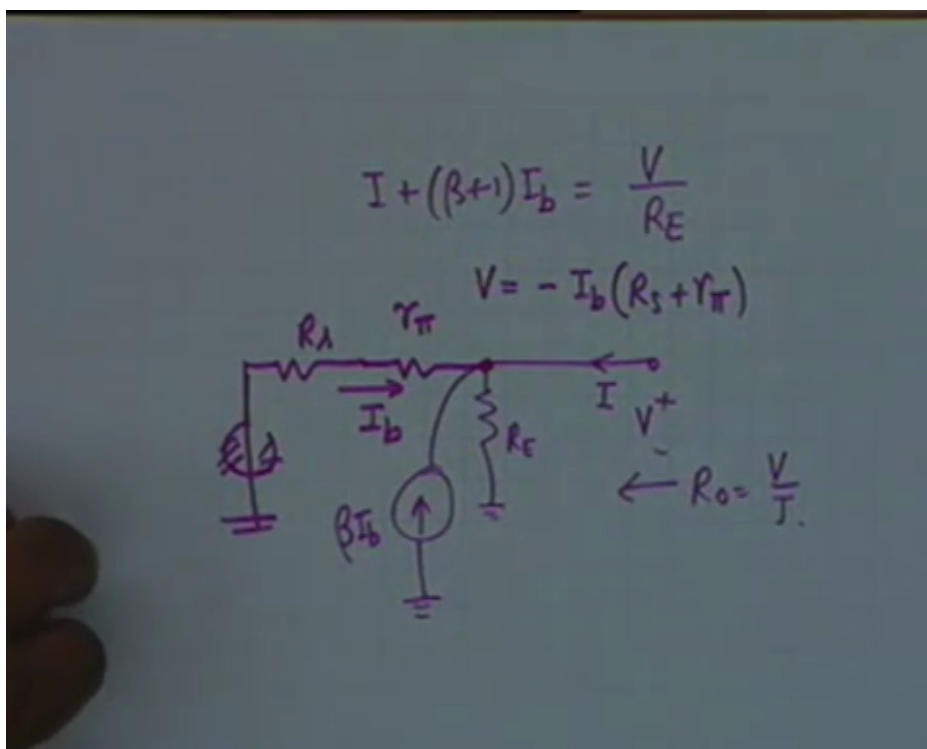 I + (β+1) I_b = V / R_E
V = - I_b (R_s + r_π)
R_s r_π
I_b
I
V +
-
R_E
β I_b
← R_o = V / I.